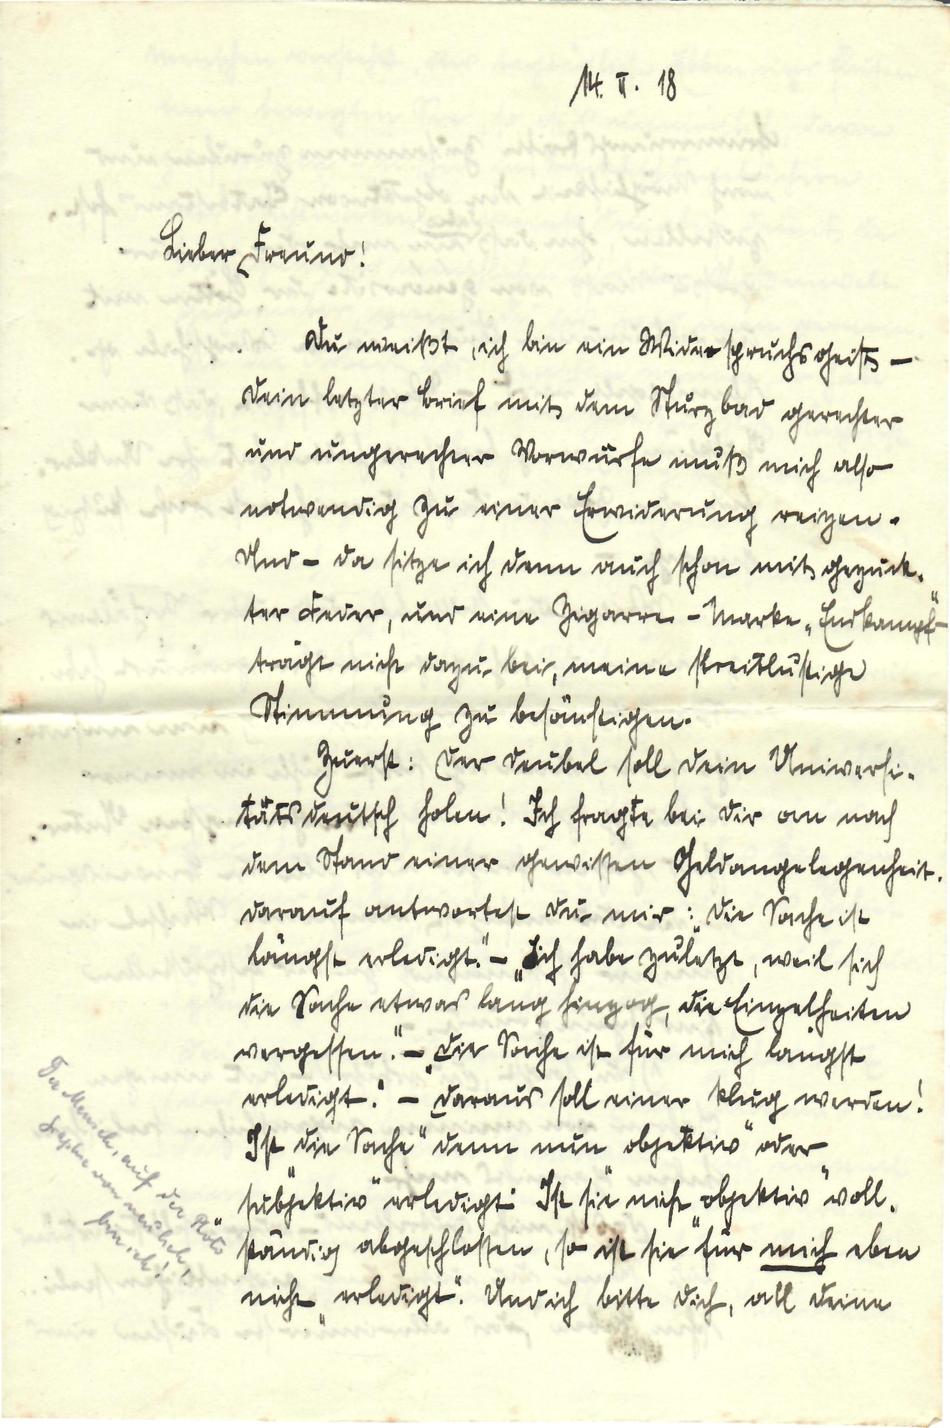 14. II. 18
Lieber Freund!
Du weißt, ich bin ein Widerspruchsgeist –
dein letzter Brief mit dem Sturzbad gerechter
und ungerechter Vorwürfe muß mich also
notwendig zu einer Erwiderung reizen.
Und – da sitze ich denn auch schon mit gezück-
ter Feder, und eine Zigarre – Marke „Endkampf“ –
trägt nicht dazu bei, meine streitlustige
Stimmung zu besänftigen.
Zuerst: Der Deubel soll dein Universi-
tätsdeutsch holen! Ich fragte bei dir an nach
dem Stand einer gewissen Geldangelegenheit.
Darauf antwortest du mir: „Die Sache ist
längst erledigt.“ – „Ich habe zuletzt, weil sich
die Sache etwas lang hinzog, die Einzelheiten
vergessen.“ – „Die Sache ist für mich längst
erledigt.“ – Daraus soll einer klug werden!
Ist die „Sache“ denn nun „objektiv“ oder
„subjektiv“ erledigt? Ist sie nicht „objektiv“ voll-
ständig abgeschlossen, so ist sie „für mich“ eben
nicht „erledigt“. Und ich bitte dich, all deine
Der Mensch, auf der
von neulich,
bin ich!